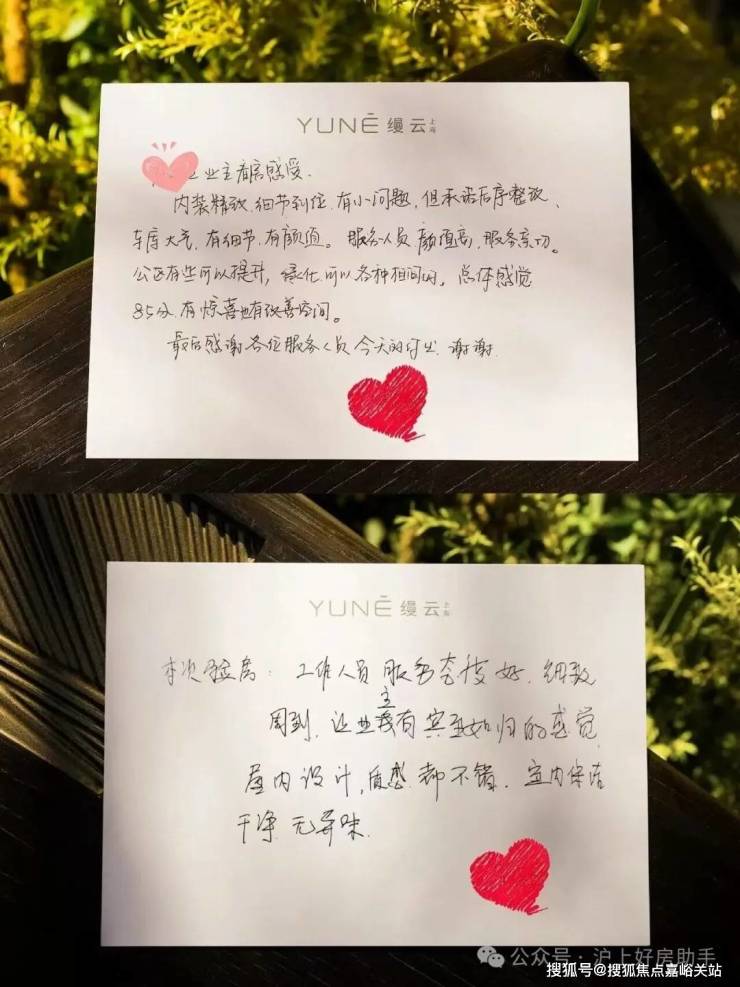 YUNĒ 缦云 上海
业主看房感受.
内装精致.细节到位.有小问题,但承诺后序整改、
车库大气,有细节.有颜值。服务人员.颜值高,服务亲切。
公区有些可以提升,绿化可以各种相间的,总体感觉
85分,有惊喜也有改善空间。
最后感谢各位服务人员今天的付出,谢谢.
YUNĒ 缦云 上海
本次验房:工作人员服务态度好.细致
周到.让业主有宾至如归的感觉
屋内设计,质感都不错.室内保洁
干净 无异味.
公众号·沪上好房助手
搜狐号@搜狐焦点嘉峪关站